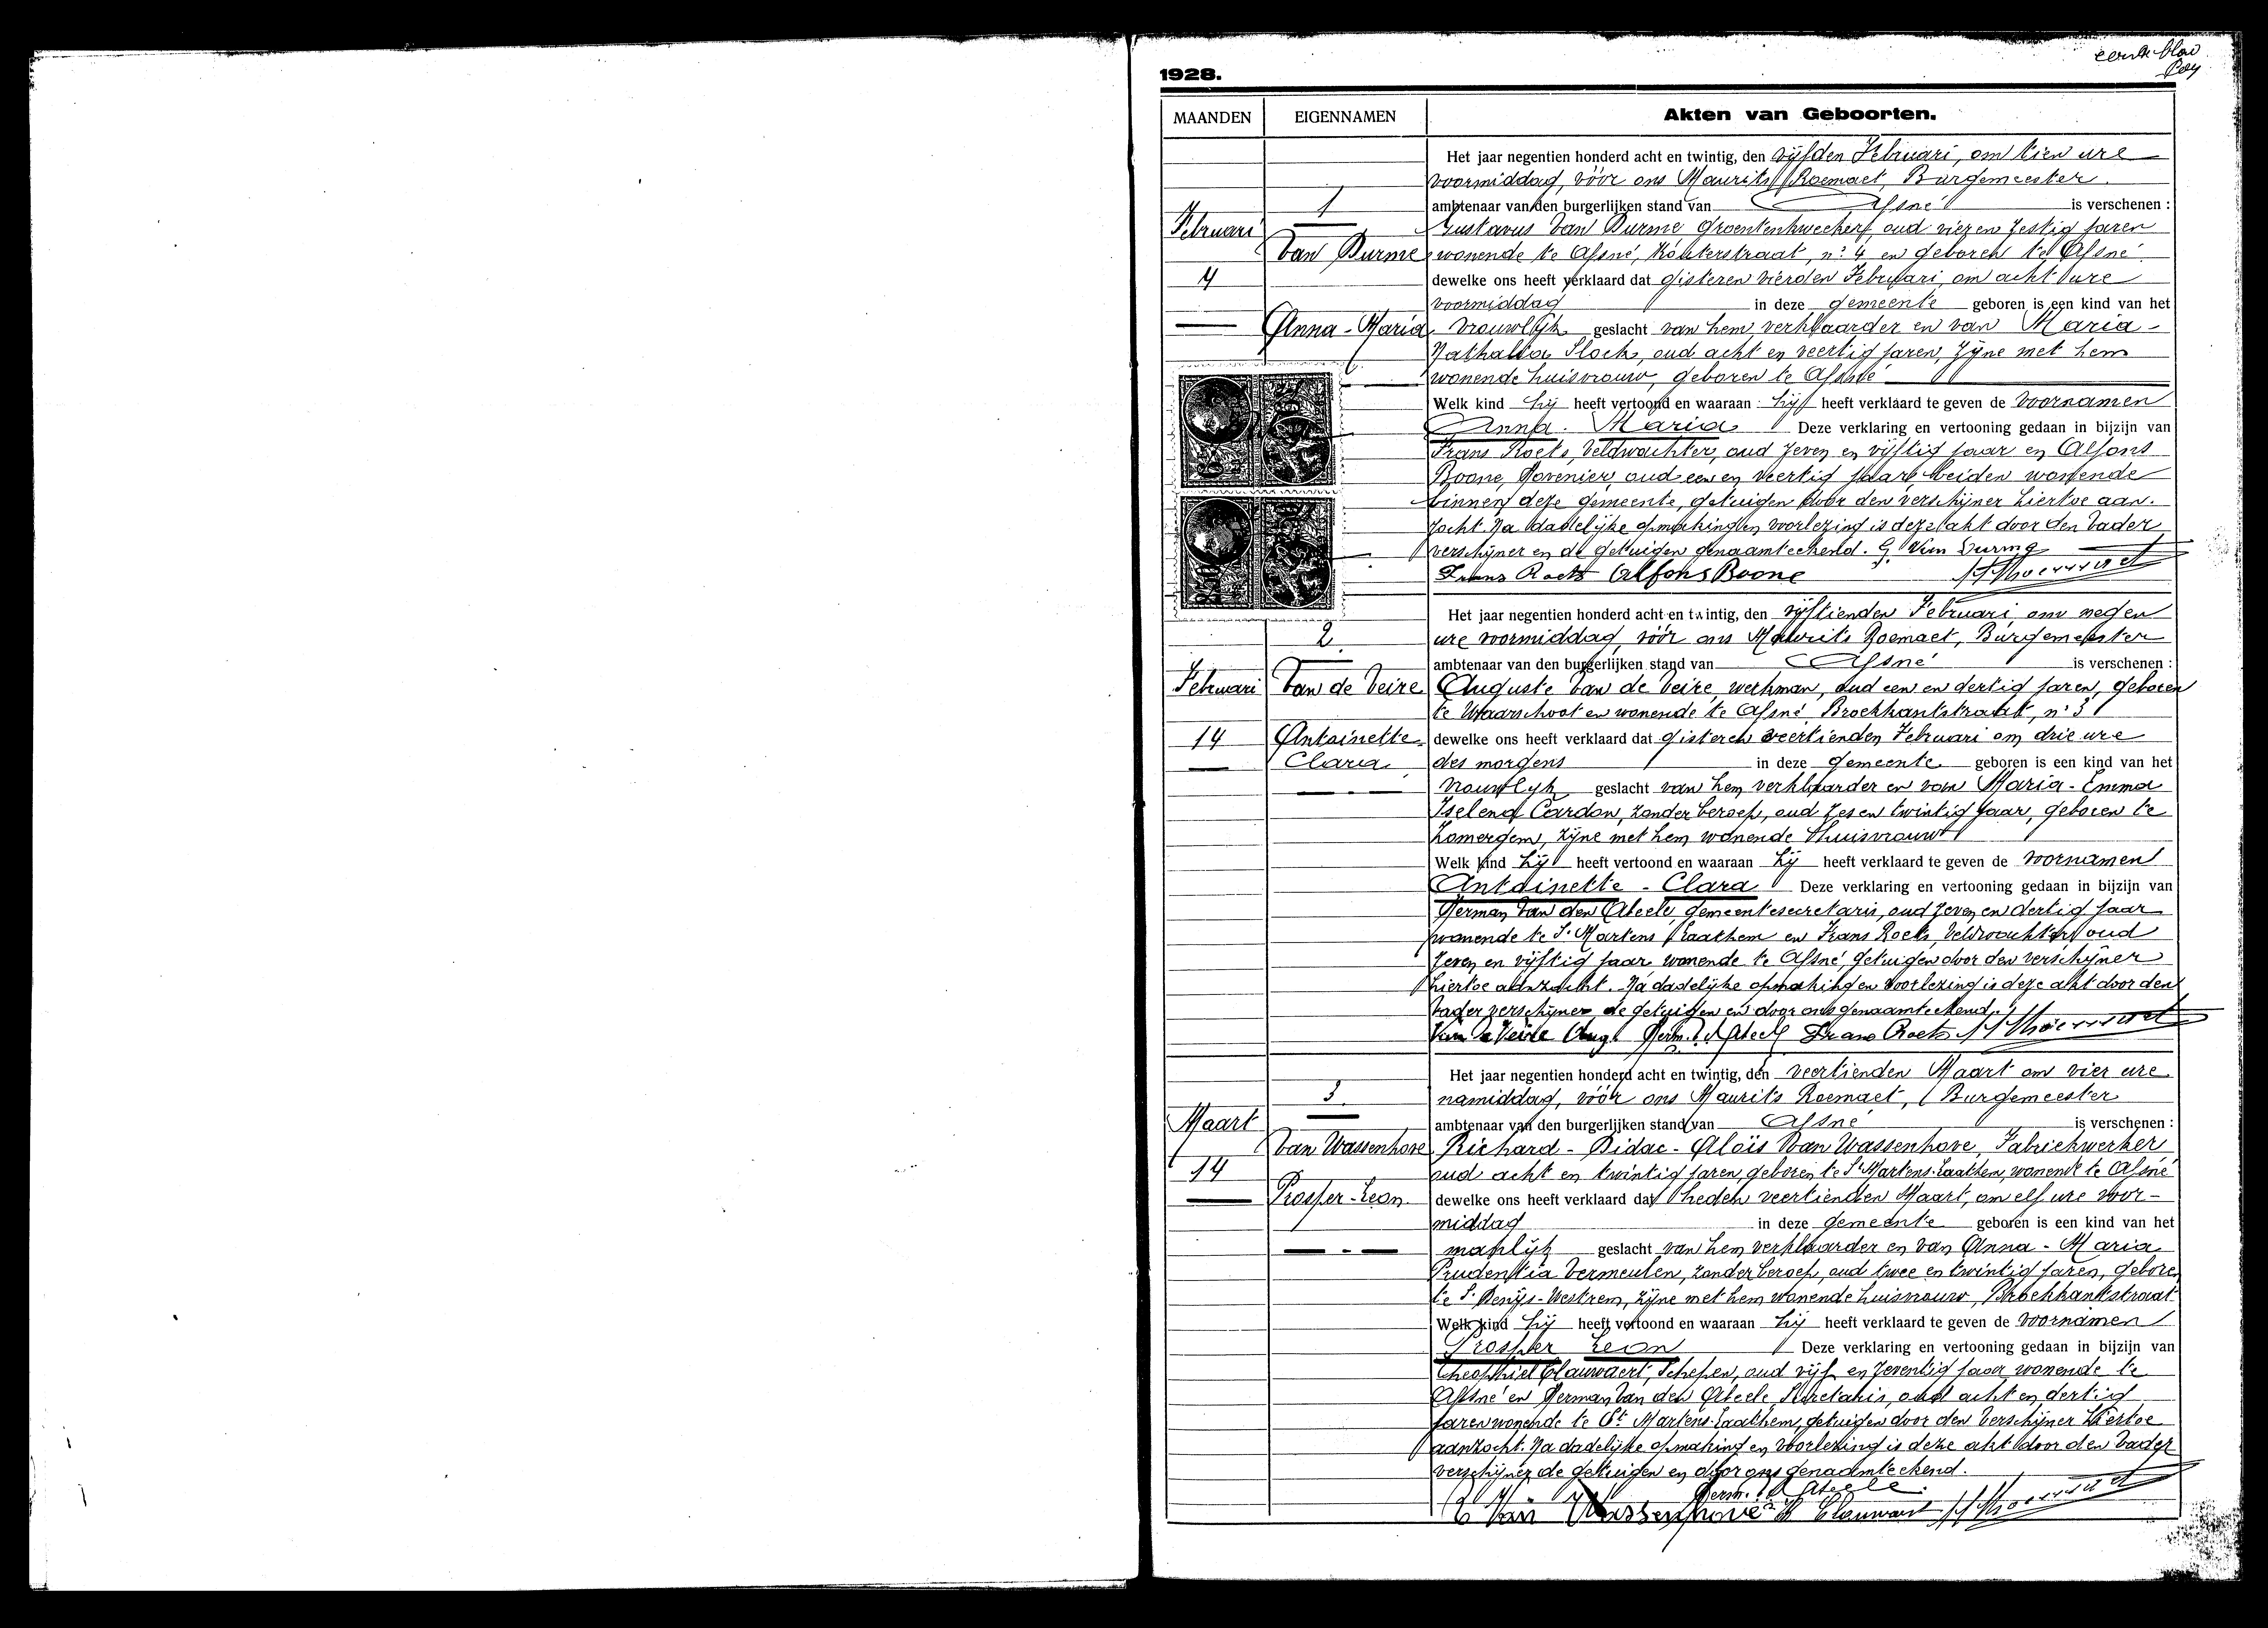 1928.
MAANDEN EIGENNAMEN Akten van Geboorten.
Het jaar negentien honderd acht en twintig, den vijfden Februari, om tien ure
voormiddag, vóór ons Maurits Roemaet, Burgemeester
1 ambtenaar van den burgerlijken stand van Afsné is verschenen :
Februari Gustavus Van Durme groentenkweeker, oud vier en zestig jaren
Van Durme wonende te Afsné, Kouterstraat, n: 4 en geboren te Afsné
4 dewelke ons heeft verklaard dat gisteren vierden Februari, om acht ure
voormiddag in deze gemeente geboren is een kind van het
Anna-Maria vrouwlijk geslacht van hem verklaarder en van Maria-
Nathalia Slock, oud acht en veertig jaren, zijne met hem
wonende huisvrouw, geboren te Afsné
Welk kind hij heeft vertoond en waaraan hij heeft verklaard te geven de voornamen
Anna-Maria Deze verklaring en vertooning gedaan in bijzijn van
Frans Roets, Veldwachter, oud zeven en vijftig jaar en Alfons
Boone, Hovenier, oud een en veertig jaar beiden wonende
binnen deze gemeente, getuigen door den verschijner hiertoe aan-
zocht. Na dadelijke opmaking en voorlezing is deze akt door den vader
verschijner en de getuigen genaamteekend. G Van Durme
Frans Roets Alfons Boone
Het jaar negentien honderd acht en twintig, den vijftienden Februari, om negen
2. ure voormiddag, vóór ons Maurits Roemaet, Burgemeester
ambtenaar van den burgerlijken stand van Afsné is verschenen :
Februari Van de Veire Auguste Van de Veire, werkman, oud een en dertig jaren, geboren
te Waarschoot en wonende te Afsné, Broekkantstraat, n: 3
14 Antoinette- dewelke ons heeft verklaard dat gisteren veertienden Februari om drie ure
Clara des morgens in deze gemeente geboren is een kind van het
vrouwlijk geslacht van hem verklaarder en van Maria-Emma
Iselena Cardon, zonder beroep, oud zes en twintig jaar, geboren te
Zomergem, zijne met hem wonende huisvrouw
Welk kind hij heeft vertoond en waaraan hij heeft verklaard te geven de voornamen
Antoinette-Clara Deze verklaring en vertooning gedaan in bijzijn van
Herman Van den Abeele, gemeentesecretaris, oud zeven en dertig jaar
wonende te St Martens Laathem en Frans Roets, Veldwachter, oud
zeven en vijftig jaar wonende te Afsné, getuigen door den verschijner
hiertoe aanzocht. Na dadelijke opmaking en voorlezing is deze akt door den
vader verschijner de getuigen en door ons genaamteekend.
Van de Veire Aug. Herm. Vd Abeele Frans Roets
Het jaar negentien honderd acht en twintig, den veertienden Maart om vier ure
3. namiddag, vóór ons Maurits Roemaet, Burgemeester
Maart ambtenaar van den burgerlijken stand van Afsné is verschenen :
Van Wassenhove Richard-Didac-Aloïs Van Wassenhove, Fabriekwerker
14 oud acht en twintig jaren, geboren te St Martens-Laathem, wonende te Afsné
Prosper-Leon dewelke ons heeft verklaard dat heden veertienden Maart, om elf ure voor-
middag in deze gemeente geboren is een kind van het
manlijk geslacht van hem verklaarder en van Anna-Maria
Prudentia Vermeulen, zonder beroep, oud twee en twintig jaren, geboren
te St Denijs-Westrem, zijne met hem wonende huisvrouw, Broekkantstraat
Welk kind hij heeft vertoond en waaraan hij heeft verklaard te geven de voornamen
Prosper Leon Deze verklaring en vertooning gedaan in bijzijn van
Theophiel Clauwaert, Schepen, oud vijf en zeventig jaar wonende te
Afsné en Herman Van den Abeele Secretaris, oud acht en dertig
jaren wonende te St Martens-Laathem, getuigen door den verschijner hiertoe
aanzocht. Na dadelijke opmaking en voorlezing is deze akt door den vader
verschijner de getuigen en door ons genaamteekend.
Herm. Vd Abeele
Van Wassenhove Clauwaert